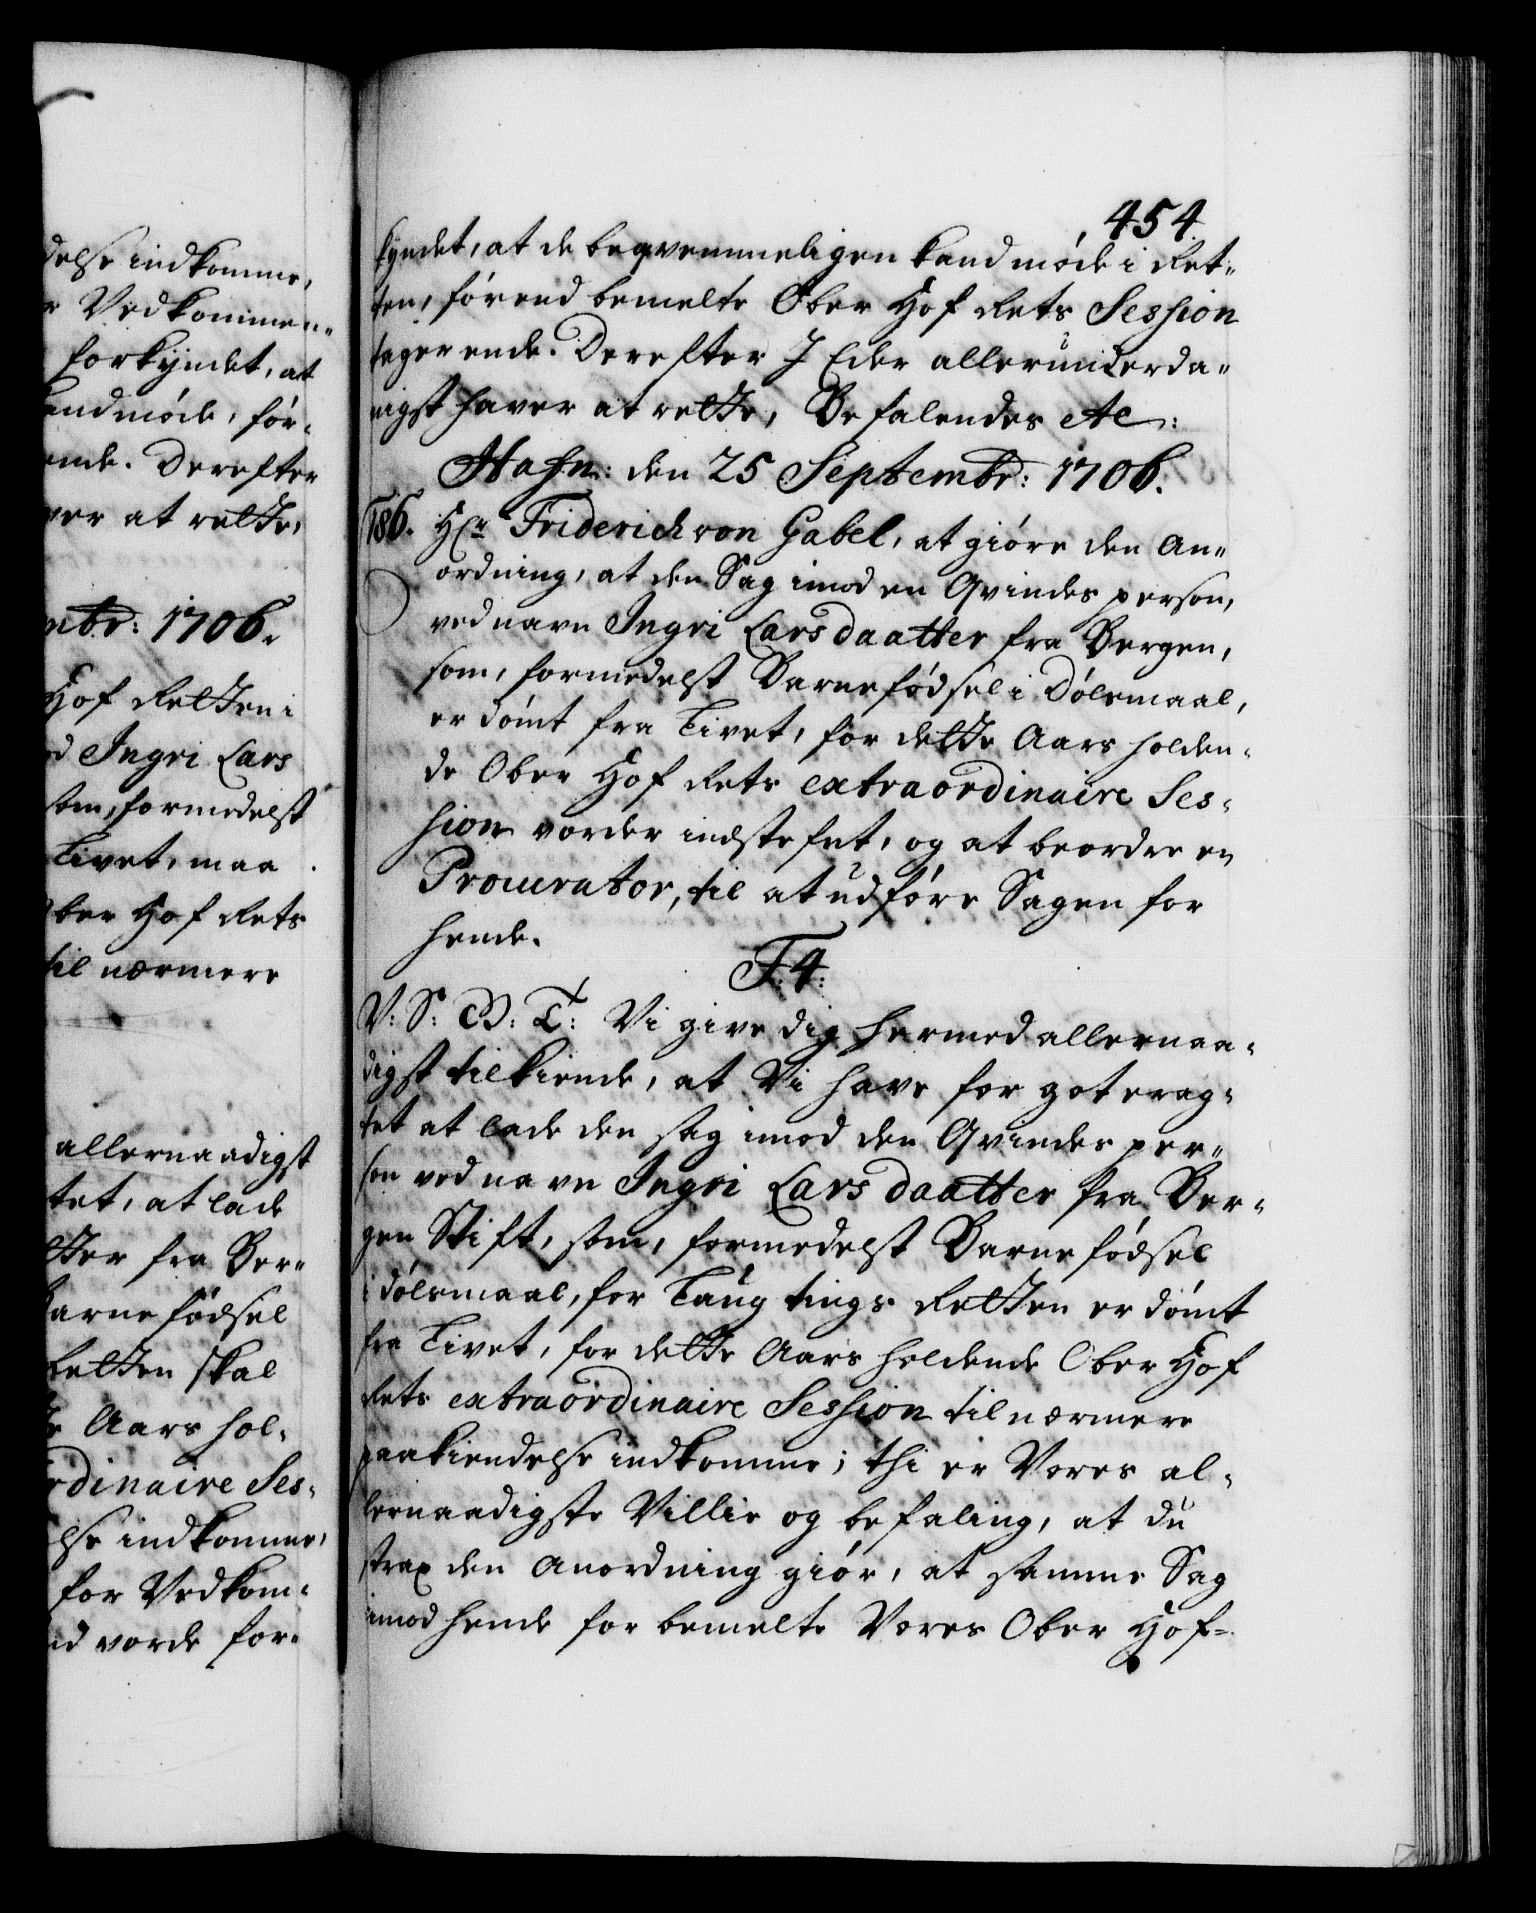 delse indkomme,
r Vedkommen„
forkyndet, at
kand möde, för„
ende. Derefter
ver at rette,
mbr: 1706.
Hof Retten i
d Ingri Lars
som, formedelst
Livet, maa
Ober Hof Rets
til nærmere
allernaadigst
tet, at lade
tter fra Ber„
Barnefödsel
Retten skal
Aars hol„
rdinaire Ses„
else indkomme,
for Vedkom„
nd vorde for„
454.
kyndet, at de beqvemmeligen kand möde i Ret„
ten, förend bemelte Ober Hof Rets Session
tager ende. Derefter I Eder allerunderda„
nigst haver at rette, Befalendes etc:
Hafn: den 25 Septembr: 1706.
186. Hr Friderich von Gabel, at giöre den An„
ordning, at den Sag imod en Qvindes person,
ved navn Ingri Larsdaatter fra Bergen,
som, formedelst Barnefödsel i Dölsmaal,
er dömt fra Livet, for dette Aars holden„
de Ober Hof Rets extraordinaire Ses„
sion vorder indstefnt, og at beordre en
Procurator, til at udföre Sagen for
hende.
F: 4:
V: S: G: T: Vi give dig hermed allernaa„
digst tilkiende, at Vi have for got erag„
tet at lade den sag imod den Qvindes per„
son ved navn Ingri Lars daatter fra Ber„
gen Stift, som, formedelst Barnefödsel
i dölsmaal, for Laugtings Retten er dömt
fra Livet, for dette Aars holdende Ober Hof
Rets extraordinaire Session til nærmere
paakiendelse indkomme; thi er Vores al„
lernaadigste Villie og befaling, at du
strax den Anordning giör, at samme Sag
imod hende for bemelte Vores Ober Hof„